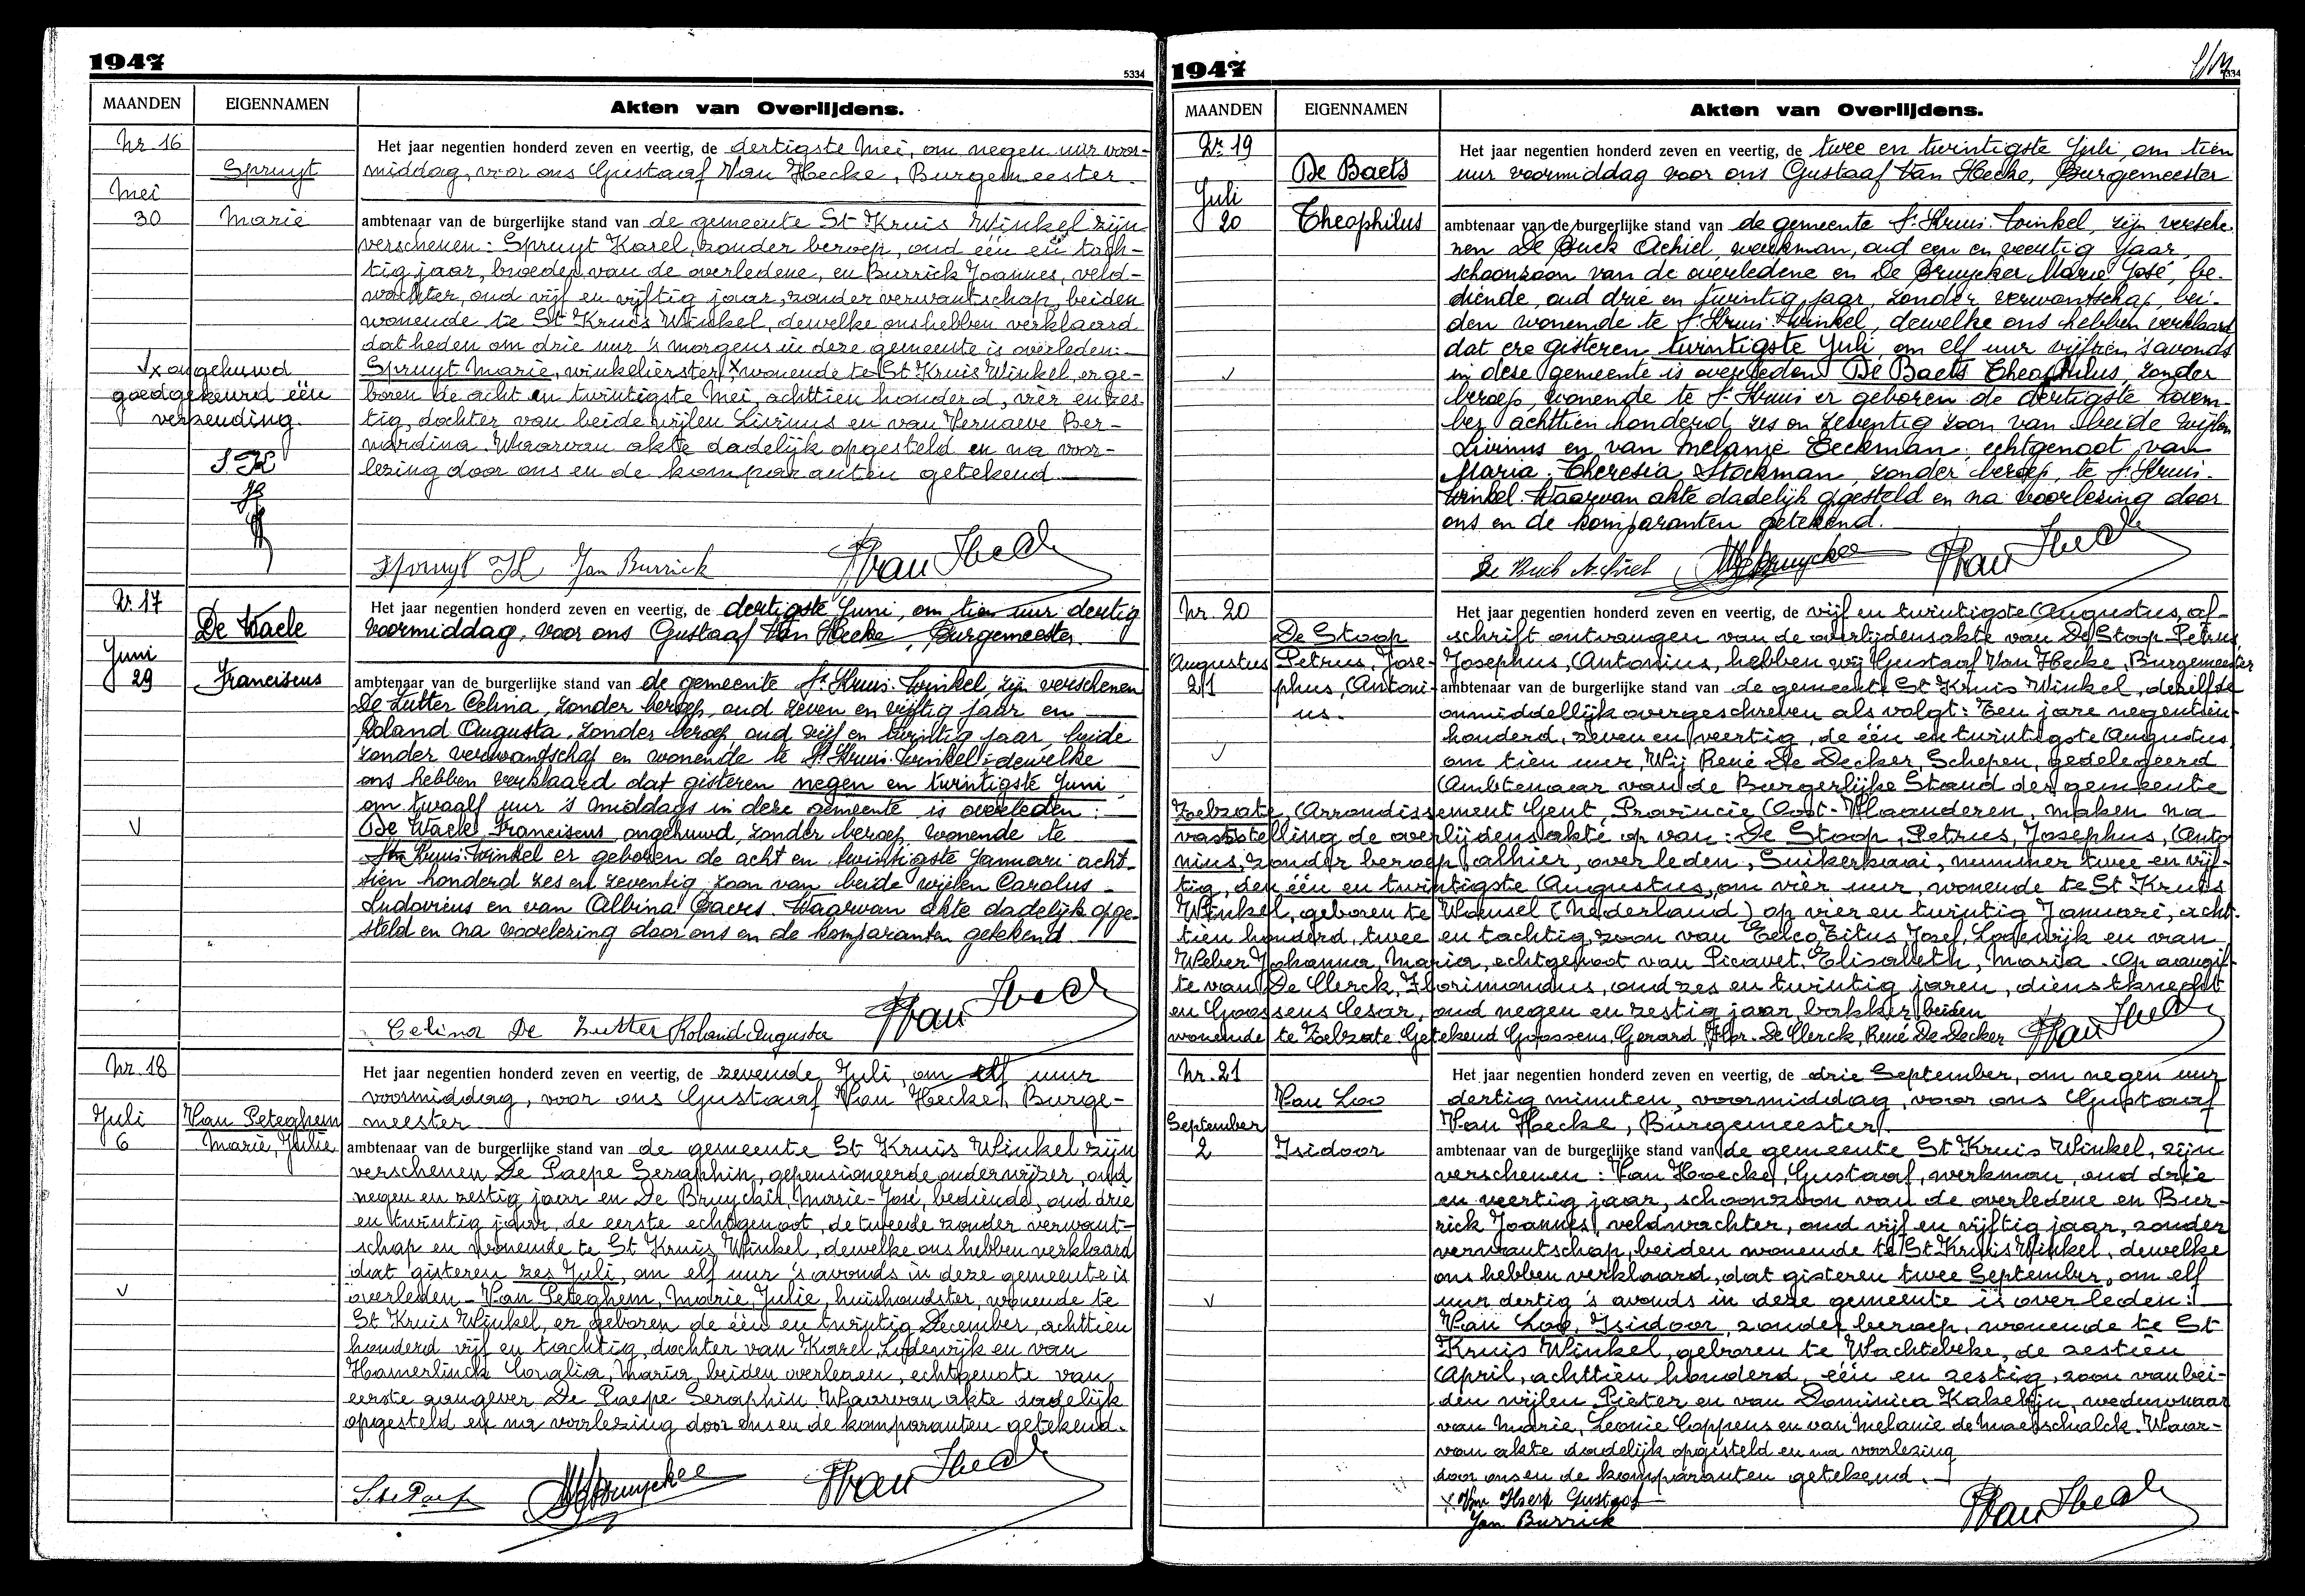 1947
5334
MAANDEN
EIGENNAMEN
Akten van Overlijdens.
Nr 16
Spruyt
Mei
30
Marie
Het jaar negentien honderd zeven en veertig, de dertigste Mei, om negen uur voor-
middag, voor ons Gustaaf Van Hecke, Burgemeester
ambtenaar van de burgerlijke stand van de gemeente St Kruis Winkel zijn
verschenen: Spruyt Karel, zonder beroep, oud één en tach-
tig jaar, broeder van de overledene, en Burrick Joannes, veld-
wachter, oud vijf en vijftig jaar, zonder verwantschap, beiden
wonende te St Kruis Winkel, dewelke ons hebben verklaard
dat heden om drie uur 's morgens in deze gemeente is overleden:
Spruyt Marie, winkelierster, x wonende te St Kruis Winkel, er ge-
boren de acht en twintigste Mei, achttien honderd, vier en zes-
tig, dochter van beide wijlen Livinus en van Vernaeve Ber-
nardina. Waarvan akte dadelijk opgesteld en na voor-
lezing door ons en de komparanten getekend
x ongehuwd
goedgekeurd één
verzending.
S. K
Spruyt K Jan Burrick Van Hecke
Nr. 17
De Waele
Juni
29
Franciscus
Het jaar negentien honderd zeven en veertig, de dertigste Juni, om tien uur dertig
voormiddag, voor ons Gustaaf Van Hecke, Burgemeester
ambtenaar van de burgerlijke stand van de gemeente St Kruis-Winkel, zijn verschenen
De Zutter Celina, zonder beroep, oud zeven en vijftig jaar en
Roland Augusta, zonder beroep, oud vijf en twintig jaar, beide
zonder verwantschap en wonende te St Kruis-Winkel, dewelke
ons hebben verklaard dat gisteren negen en twintigste Juni
om twaalf uur 's middags in deze gemeente is overleden:
De Waele Franciscus ongehuwd, zonder beroep, wonende te
St Kruis-Winkel er geboren de acht en twintigste Januari acht-
tien honderd zes en zeventig zoon van beide wijlen Carolus-
Ludovicus en van Albina Baers. Waarvan akte dadelijk opge-
steld en na voorlezing door ons en de komparanten getekend
Celina De Zutter Roland Augusta Van Hecke
Nr. 18
Juli
6
Van Peteghem
Marie, Julie
Het jaar negentien honderd zeven en veertig, de zevende Juli, om elf uur
voormiddag, voor ons Gustaaf Van Hecke, Burge-
meester
ambtenaar van de burgerlijke stand van de gemeente St Kruis Winkel zijn
verschenen De Paepe Seraphin, gepensioneerde onderwijzer, oud
negen en zestig jaar en De Bruycker, Marie-José, bediende, oud drie
en twintig jaar, de eerste echtgenoot, de tweede zonder verwant-
schap en wonende te St Kruis Winkel, dewelke ons hebben verklaard
dat gisteren zes Juli, om elf uur 's avonds in deze gemeente is
overleden - Van Peteghem, Marie, Julie, huishoudster, wonende te
St Kruis Winkel, er geboren de één en twintig December, achttien
honderd vijf en tachtig, dochter van Karel, Lodewijk en van
Hamerlinck Coralia, Maria, beiden overleden, echtgenote van
eerste aangever De Paepe Seraphin. Waarvan akte dadelijk
opgesteld en na voorlezing door ons en de komparanten getekend.
S. De Paepe MJ De Bruycker Van Hecke
1947
5334
MAANDEN
EIGENNAMEN
Akten van Overlijdens.
Nr. 19
De Baets
Juli
20
Theophilus
Het jaar negentien honderd zeven en veertig, de twee en twintigste Juli, om tien
uur voormiddag voor ons Gustaaf Van Hecke, Burgemeester
ambtenaar van de burgerlijke stand van de gemeente St Kruis-Winkel, zijn versche-
nen De Buck Achiel, werkman, oud een en veertig jaar,
schoonzoon van de overledene en De Bruycker Marie José, be-
diende, oud drie en twintig jaar, zonder verwantschap, bei-
den wonende te St Kruis-Winkel, dewelke ons hebben verklaard
dat ere gisteren twintigste Juli, om elf uur vijftien 's avonds
in deze gemeente is overleden De Baets Theophilus, zonder
beroep, wonende te St Kruis er geboren de dertigste Novem-
ber achttien honderd zes en zeventig zoon van beide wijlen
Livinus en van Melanie Eeckman, echtgenoot van
Maria-Theresia Stockman, zonder beroep, te St Kruis-
Winkel. Waarvan akte dadelijk opgesteld en na voorlezing door
ons en de komparanten getekend.
De Buck Achiel MJ De Bruycker Van Hecke
Nr. 20
De Stoop
Augustus
21
Petrus, Jose-
phus, Antoni-
us.
Het jaar negentien honderd zeven en veertig, de vijf en twintigste Augustus, af-
schrift ontvangen van de overlijdensakte van De Stoop Petrus
Josephus, Antonius, hebben wij Gustaaf Van Hecke, Burgemeester
ambtenaar van de burgerlijke stand van de gemeente St Kruis Winkel, dezelfde
onmiddellijk overgeschreven als volgt: Ten jare negentien
honderd, zeven en veertig, de één en twintigste Augustus,
om tien uur, Wij René De Decker, Schepen, gedelegeerd
Ambtenaar van de Burgerlijke Stand der gemeente
Zelzate, Arrondissement Gent, Provincie Oost-Vlaanderen, maken na
vaststelling de overlijdensakte op van: De Stoop, Petrus, Josephus, Anto
nius, zonder beroep, alhier, overleden, Suikerkaai, nummer twee en vijf-
tig, den één en twintigste Augustus, om vier uur, wonende te St Kruis
Winkel, geboren te Wousel (Nederland) op vier en twintig Januari, acht-
tien honderd, twee en tachtig, zoon van Eelco, Titus, Josef, Lodewijk en van
Weber Johanna, Maria, echtgenoot van Picavet, Elisabeth, Maria. Op aangif-
te van De Clerck, Florimondus, oud zes en twintig jaren, dienstknecht
en Goossens Cesar, oud negen en zestig jaar, bakker, beiden
wonende te Zelzate Getekend Goossens, Gerard, Flor. De Clerck, René De Decker Van Hecke
Nr. 21
Van Loo
September
2
Isidoor
Het jaar negentien honderd zeven en veertig, de drie September, om negen uur
dertig minuten, voormiddag, voor ons Gustaaf
Van Hecke, Burgemeester
ambtenaar van de burgerlijke stand van de gemeente St Kruis Winkel, zijn
verschenen: Van Hoecke, Gustaaf, werkman, oud drie
en veertig jaar, schoonzoon van de overledene en Bur-
rick Joannes, veldwachter, oud vijf en vijftig jaar, zonder
verwantschap, beiden wonende te St Kruis Winkel, dewelke
ons hebben verklaard, dat gisteren twee September, om elf
uur dertig 's avonds in deze gemeente is overleden:
Van Loo, Isidoor, zonder beroep, wonende te St
Kruis Winkel, geboren te Wachtebeke, de zestien
April, achttien honderd, één en zestig, zoon van bei-
den wijlen Pieter en van Dominica Kakelijn, weduwnaar
van Marie, Leonie Coppens en van Melanie de Maerschalck. Waar-
van akte dadelijk opgesteld en na voorlezing
door ons en de komparanten getekend.
x Van Hoeck Gustaaf
Jan Burrick Van Hecke